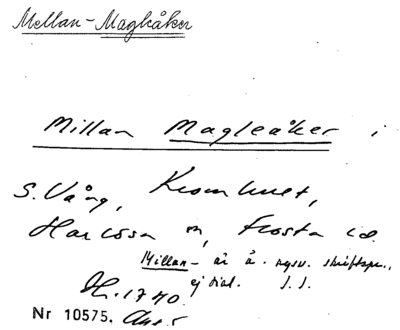 Mellan-Maglåker
Millan Magleåker i
S. Vång,
Harlösa sn, Frosta hd.
Millan- är å. nysv. skriftspr.,
ej dial. J. J.
H. 1740.
Nr 10575.